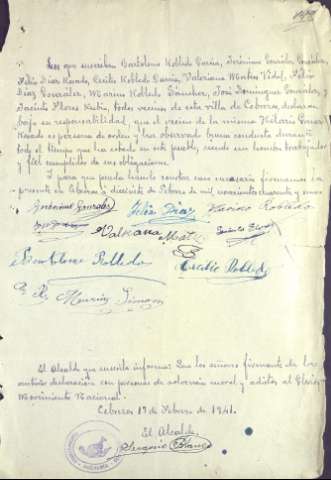 Los que suscriben Bartolomé Robledo García, Jerónimo González González,
Felix Díaz Rosado, Cecilio Robledo García, Valeriana Mateos Vidal, Felix
Díaz González, Marino Robledo Sánchez, José Domínguez González, y
Jacinto Flores Rubio, todos vecinos de esta villa de Ceberos, declaran
bajo su responsabilidad, que el vecino de la misma Hilario González
Rosado es persona de orden y ha observado buena conducta durante
todo el tiempo que ha estado en este pueblo, siendo un hombre trabajador
y fiel cumplidor de sus obligaciones.
Y para que pueda hacerlo constar firmamos la
presente en a diecisiete de Febrero de mil novecientos cuarenta y uno
Jerónimo González Felix Díaz Marino Robledo
Valeriana Mateos Jacinto Flores
Bartolomé Robledo Cecilio Robledo
El Alcalde que suscribe informa: Que los señores firmantes de la
anterior declaración son personas de solvencia moral y adictos al Glorioso
Movimiento Nacional.
17 de Febrero de 1941.
El Alcalde